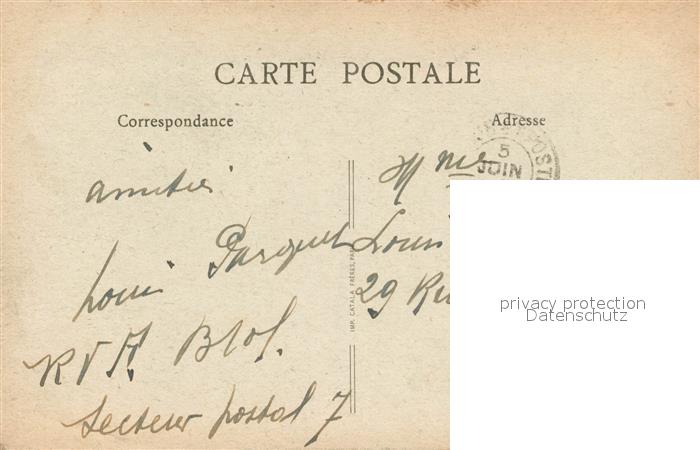 CARTE POSTALE
Correspondance
Adresse
5
JOIN
Amitiés
Mme
Louis Pasquet
Louis
29 Ru
IMP. CATALA FRÈRES, PARIS
Secteur postal 7
privacy protection
Datenschutz